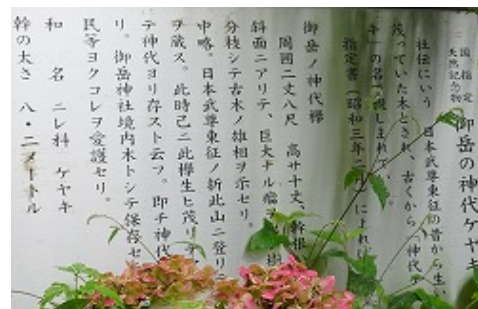 国指定
天然記念物
御岳の神代ケヤキ
社伝にいう 日本武尊東征の昔から生い
茂っていた木とされ、古くから「神代ケ
キ」の名 親しまれて
指定書(昭和三年 によれば
御岳ノ神代欅
周囲二丈八尺 高サ十丈、幹根
斜面ニアリテ、巨大ナル瘤 樹
分枝シテ古木ノ雄相ヲ示セリ。
中略。日本武尊東征ノ折此山ニ登リ
ヲ蔵ス。此時已ニ此欅生ヒ茂リテ
テ神代ヨリ存スト云フ。即チ神代
リ。御岳神社境内木トシテ保存セ
民等ヨクコレヲ愛護セリ。
和名 ニレ科 ケヤキ
幹の太さ 八・二メートル